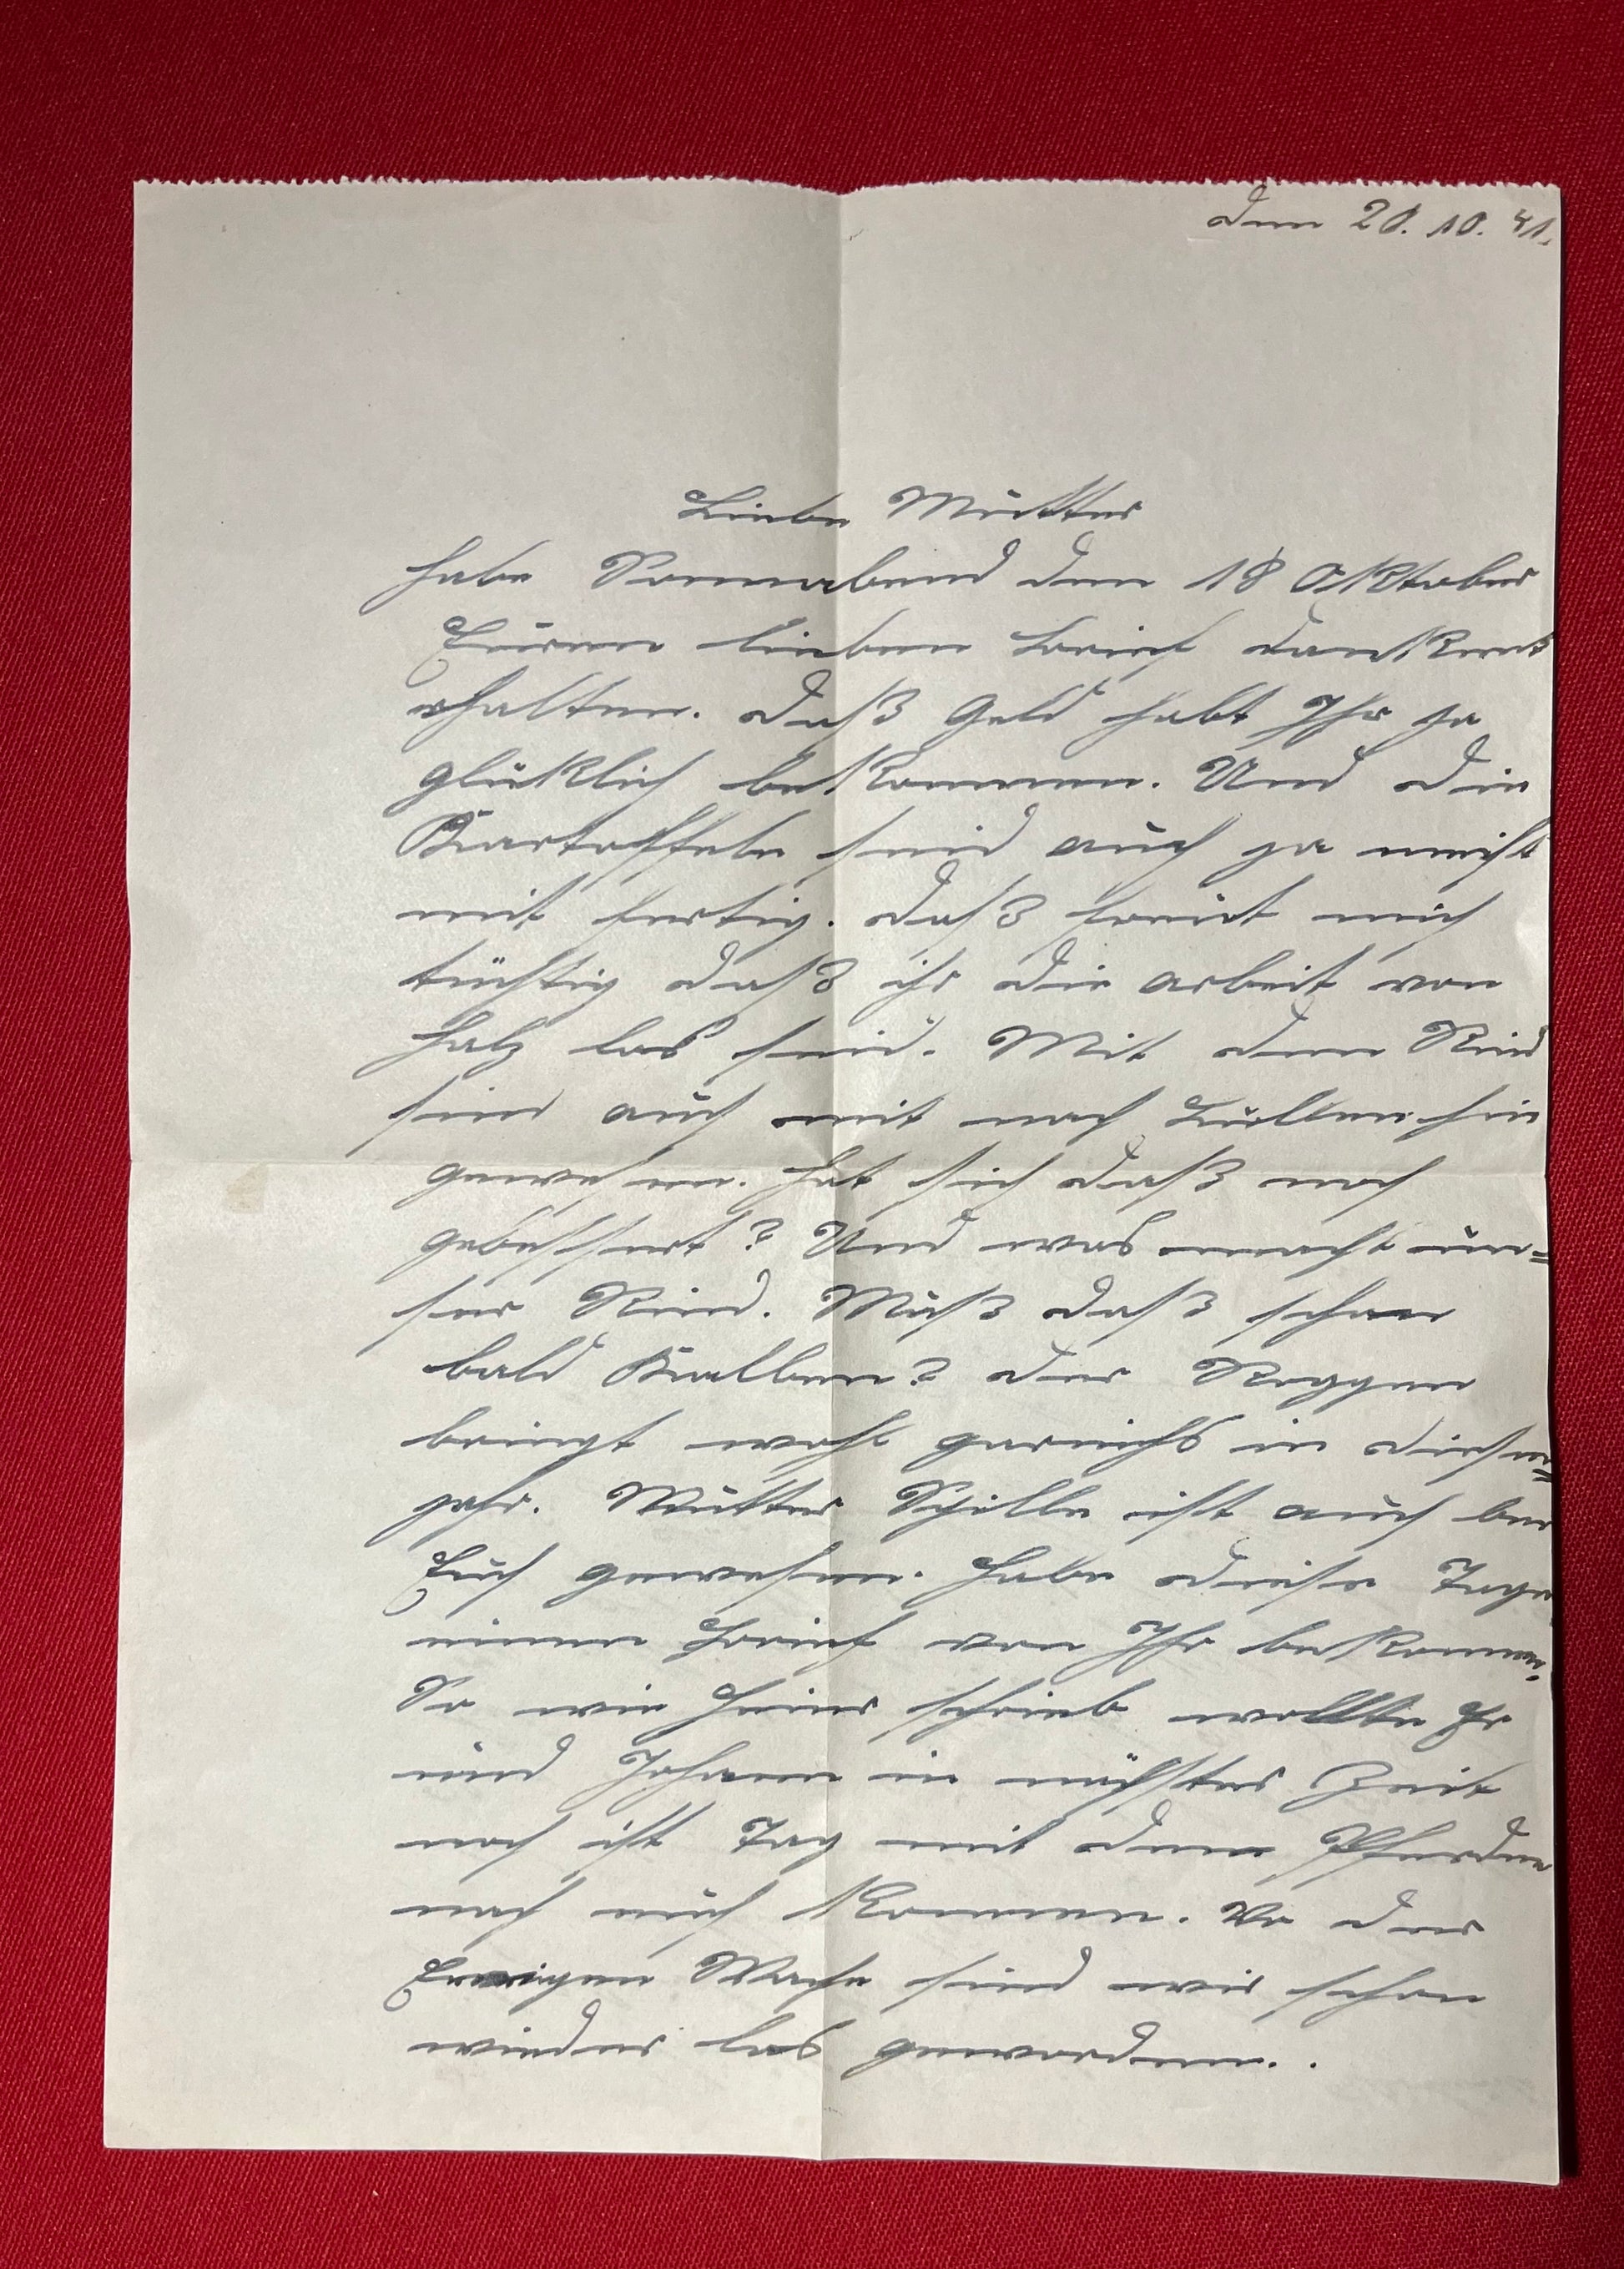 Den 20. 10. 41.
Liebe Mutter
habe Sonnabend den 18 Oktober
Euren lieben Brief dankent
erhalten. Daß Geld habt Ihr ja
glüklich bekommen. Und die
Kartoffeln seid auch ja meist
mit fertig. Daß freut mich
tüchtig daß ihr die arbeit von
Halz los seid. Mit den Rind
sind auch mit nach Bullen hin
gewesen. Hat sich daß noch
gebessert? Und was macht un=
ser Rind. Muß daß schon
bald Kalben? Der Roggen
bringt wohl garnichs in diesen=
jahr. Mutter Schille ist auch bei
Euch gewesen. Habe diese Tage
einen Brief von Ihr bekommen.
So wie Heiner schrieb wollte Er
und Johann in nächster Zeit
noch ist Tag mit den Pferden
nach euch kommen. Vo der
Ewigen Wache sind wir schon
wieder los geworden..